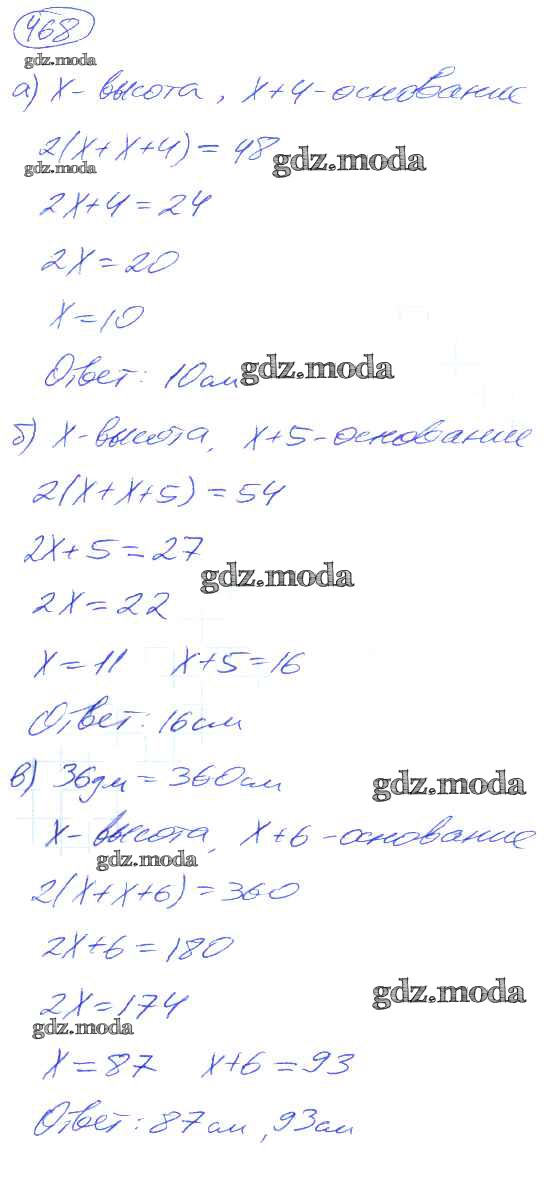 468
gdz.moda
а) x - высота, x+4 - основание
2(x+x+4) = 48
gdz.moda gdz.moda
2x+4 = 24
2x = 20
x = 10
Ответ: 10 см
gdz.moda
б) x - высота, x+5 - основание
2(x+x+5) = 54
2x+5 = 27
gdz.moda
2x = 22
x = 11 x+5 = 16
Ответ: 16 см
в) 36 дм = 360 см
gdz.moda
x - высота, x+6 - основание
gdz.moda
2(x+x+6) = 360
2x+6 = 180
2x = 174
gdz.moda
gdz.moda
x = 87 x+6 = 93
Ответ: 87 см, 93 см